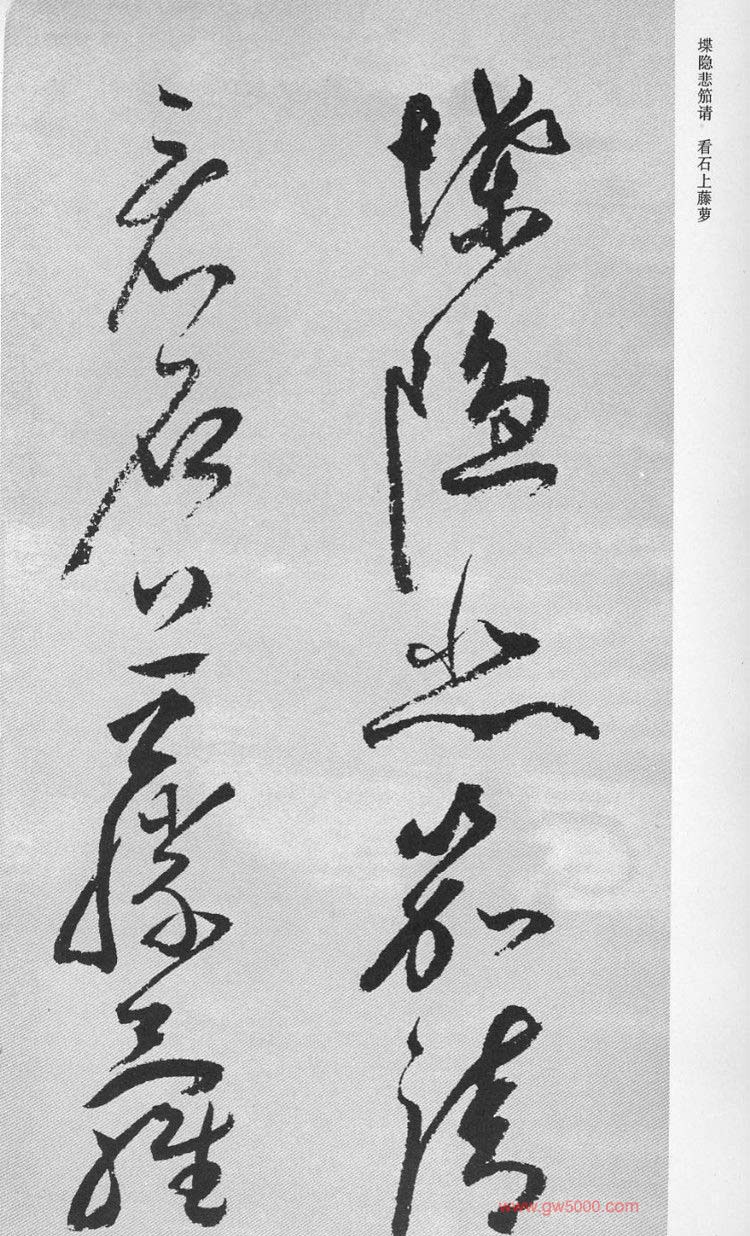 堞隐悲笳请 看石上藤萝
堞隱悲笳請
看石上藤蘿
www.gw5000.com